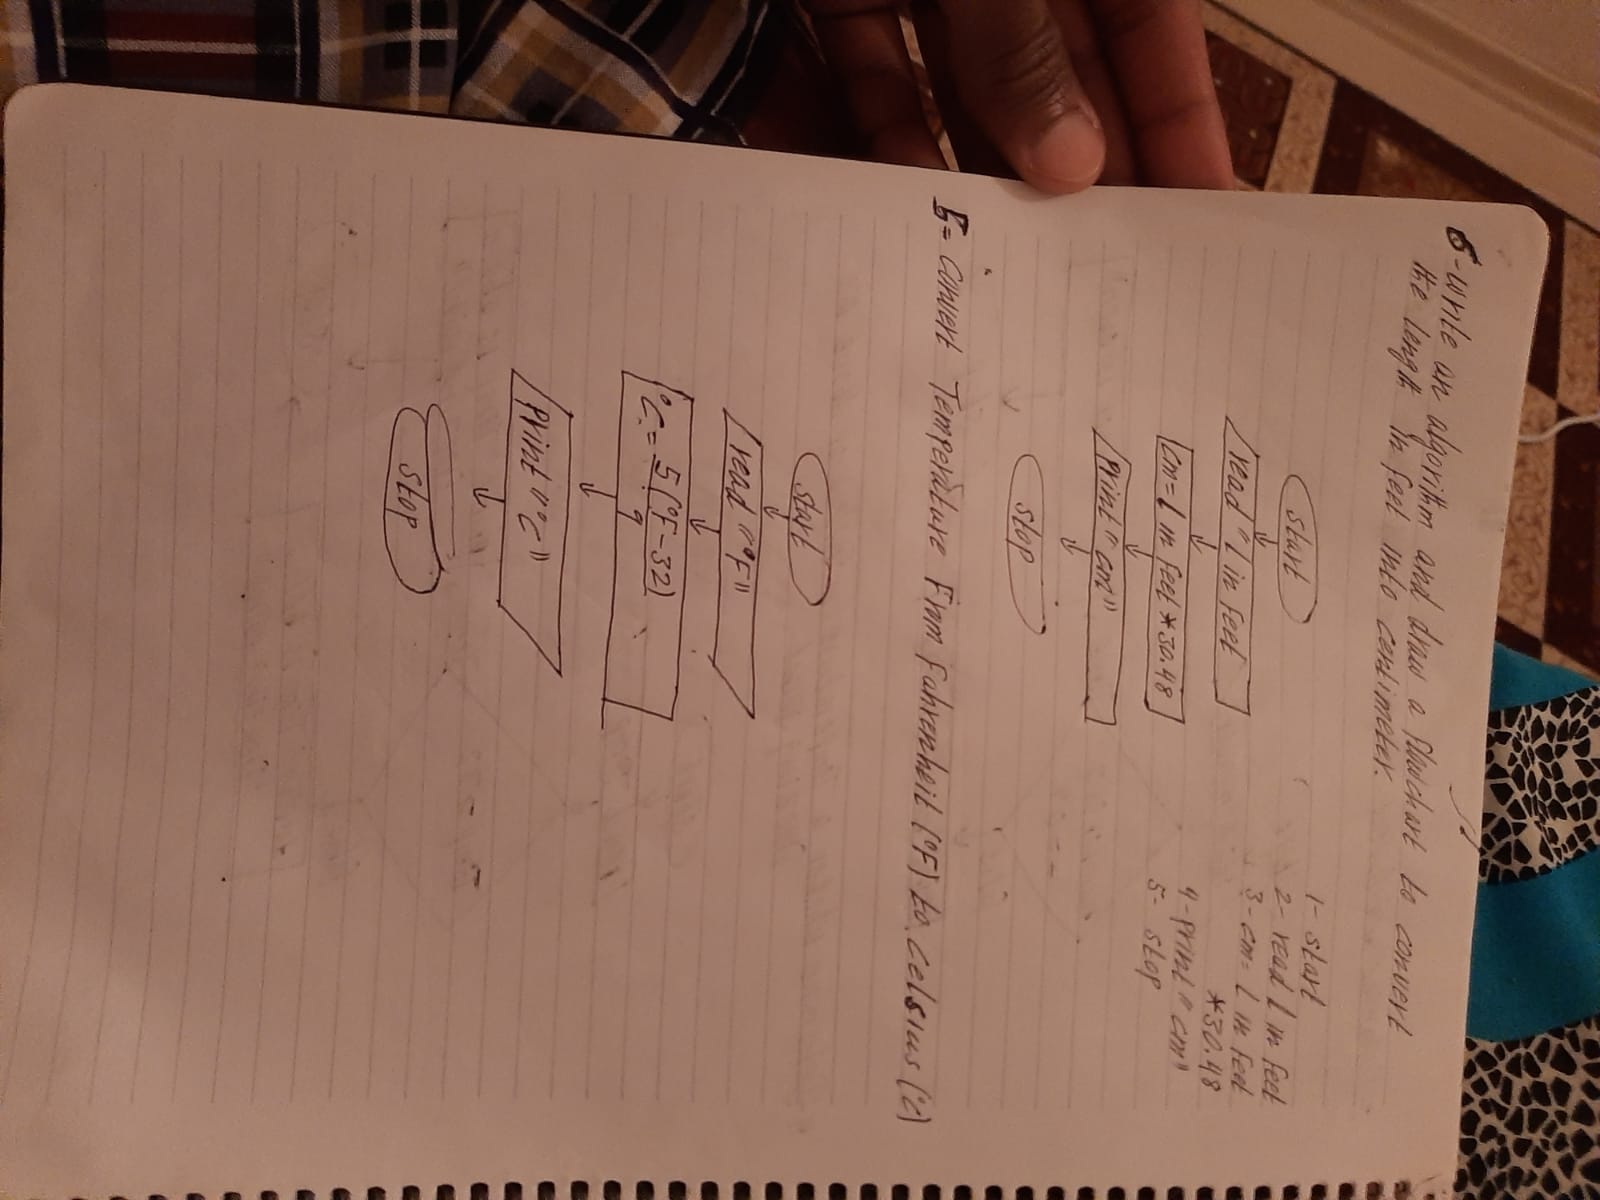 6-write an algorithm and draw a flowchart to convert
the length in feet into centimeter.
start
read " L in feet
cm = L in feet * 30.48
Print " cm"
stop
1- start
2- read L in feet
3- cm = L in feet
* 30.48
4- print " cm"
5- stop
= Convert Temperature From Fahrenheit (°F) to Celsius (°C)
start
read "°F"
°C = 5 (°F-32)
9
Print "°C"
stop